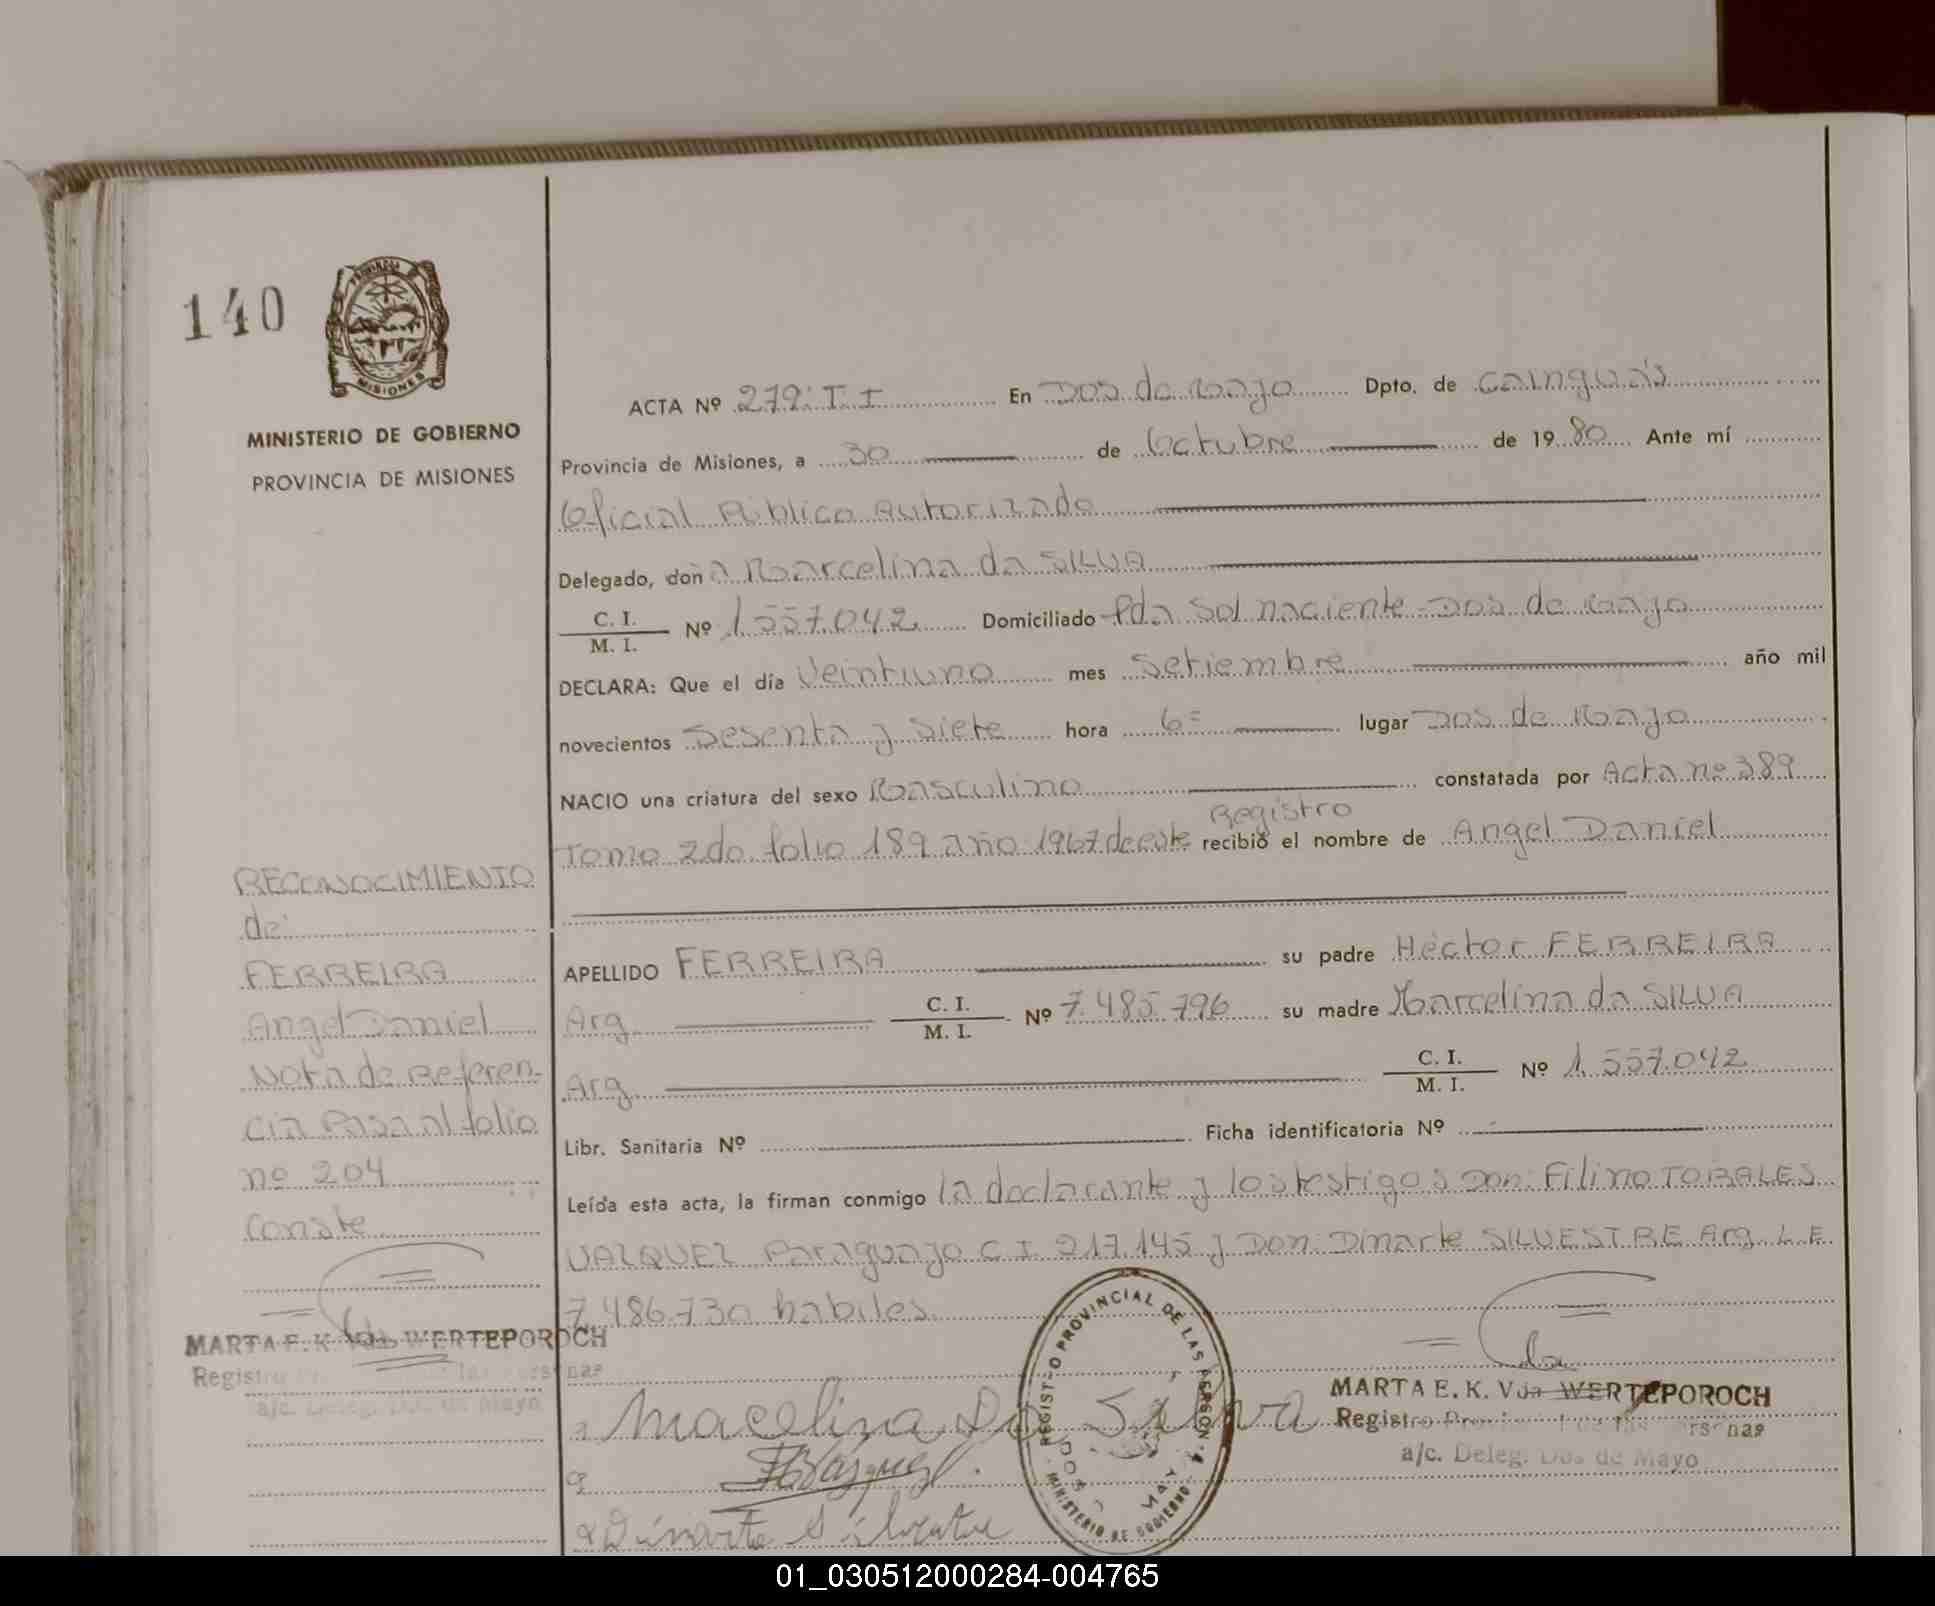 140
PROVINCIA DE
MISIONES
MINISTERIO DE GOBIERNO
PROVINCIA DE MISIONES
ACTA Nº 279: T. I En Dos de Mayo Dpto. de Cainguás
Provincia de Misiones, a 30 de Octubre de 19 80 Ante mí
Oficial Público Autorizado
Delegado, doña Marcelina da SILVA
C. I.
M. I. Nº 1.557.042 Domiciliado Pda Sol naciente-Dos de Mayo
DECLARA: Que el día Veintiuno mes Setiembre año mil
novecientos Sesenta y Siete hora 6= lugar Dos de Mayo
NACIO una criatura del sexo Masculino constatada por Acta nº 389
Registro
Tomo 2do. folio 189 año 1967 de este recibió el nombre de Angel Daniel
APELLIDO FERREIRA su padre Héctor FERREIRA
Arg. C. I.
M. I. Nº 7.485.796 su madre Marcelina da SILVA
Arg. C. I.
M. I. Nº 1.557.042
Libr. Sanitaria Nº Ficha identificatoria Nº
Leída esta acta, la firman conmigo la declarante y los testigos Don: Filino TORALES
VAZQUEZ Paraguayo C I 217.145 y Don: Dinarte SILVESTRE Arg. L.E.
7.486.730 habiles.
RECONOCIMIENTO
de:
FERREIRA
Angel Daniel
Nota de Referen-
cia Pasa al folio
nº 204
Conste
MARTA E. K. Vda. WERTEPOROCH
Registro Provincial de las Personas
a/c. Deleg. Dos de Mayo
Macelina Da Silva
Dinarte Silvestre
REGISTRO PROVINCIAL DE LAS PERSONAS
MINISTERIO DE GOBIERNO
DOS MAYO
MARTA E. K. Vda WERTEPOROCH
Registro Provincial de las Personas
a/c. Deleg. Dos de Mayo
01_030512000284-004765